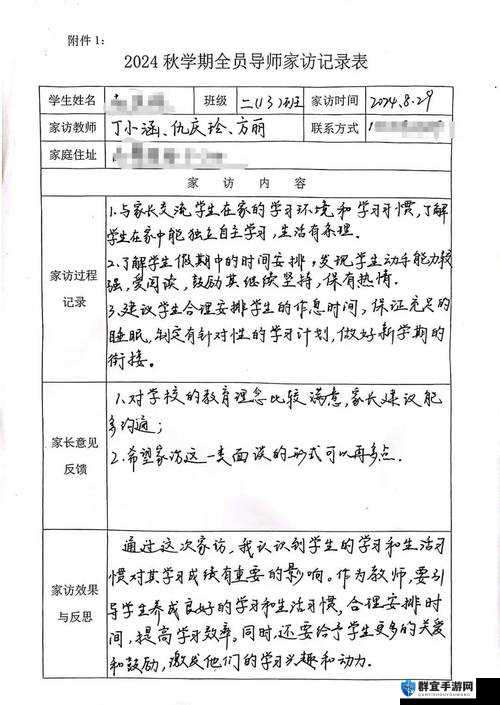 附件1：
2024 秋学期全员导师家访记录表
学生姓名 班级 二(13)班 家访时间 2024.8.29
家访教师 丁小涵、仇庆玲、方丽 联系方式
家庭住址
家 访 内 容
家访过程
记录
1.与家长交流学生在家的学习环境和学习习惯,了解
学生在家中能独立自主学习,生活有条理.
2.了解学生假期中的时间安排,发现学生动手能力较
强,爱阅读,鼓励其继续坚持,保有热情.
3.建议学生合理安排学生的作息时间,保证充足的
睡眠.制定有针对性的学习计划,做好新学期的
衔接。
家长意见
反馈
1.对学校的教育理念比较满意,家长建议能
多沟通;
2.希望家访这一类面谈的形式可以再多点.
家访效果
与反思
通过这次家访,我认识到学生的学习和生活习
惯对其学习成绩有重要的影响。作为教师,要引
导学生养成良好的学习和生活习惯,合理安排时
间,提高学习效率。同时,还要给予学生更多的关爱
和鼓励,激发他们的学习兴趣和动力.
群宜手游网